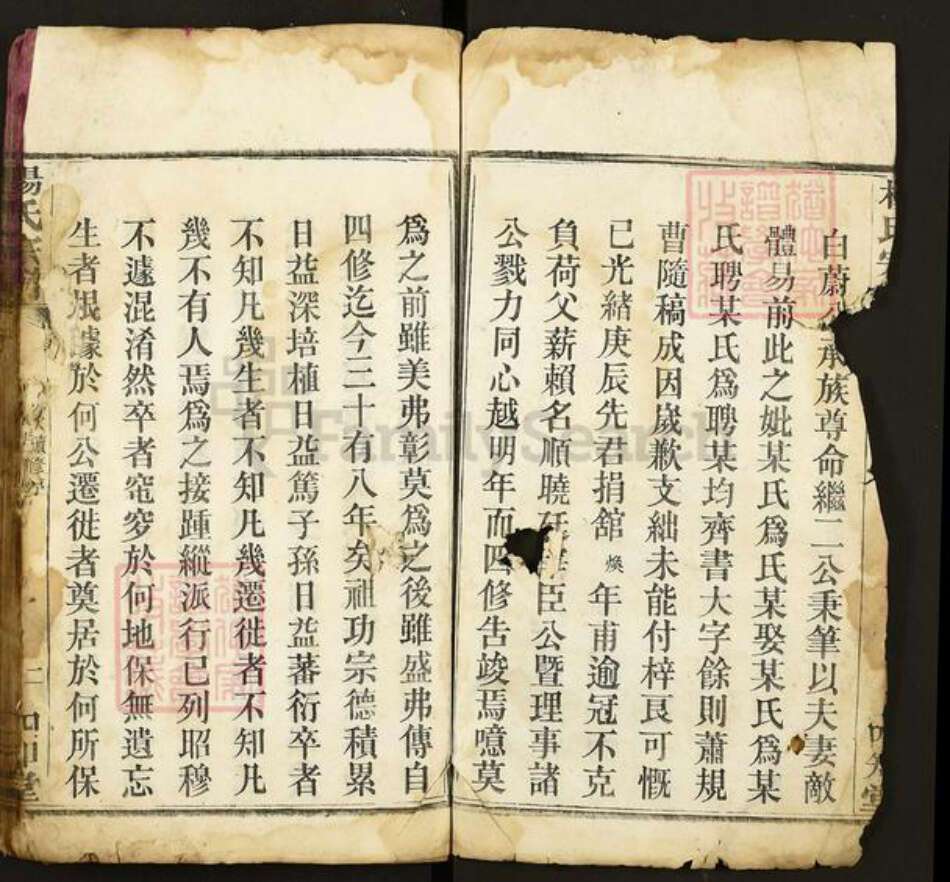 白蔚公承族尊命繼二公秉筆以夫妻敵
體易前此之妣某氏爲氏某娶某氏爲某
氏聘某氏爲聘某均齊書大字餘則蕭規
曹隨稿成因歲歉支絀未能付梓良可慨
已光緒庚辰先君捐舘煥年甫逾冠不克
負荷父薪賴名順曉廷臣公曁理事諸
公戮力同心越明年而四修告竣焉噫莫
爲之前雖美弗彰莫爲之後雖盛弗傳自
四修迄今三十有八年矣祖功宗德積累
日益深培植日益篤子孫日益蕃衍卒者
不知凡幾生者不知凡幾遷徙者不知凡
幾不有人焉爲之接踵縱派行已列昭穆
不遽混淆然卒者窀穸於何地保無遺忘
生者泯據於何公遷徙者奠居於何所保
楊氏宗
二
四知堂
FamilySearch